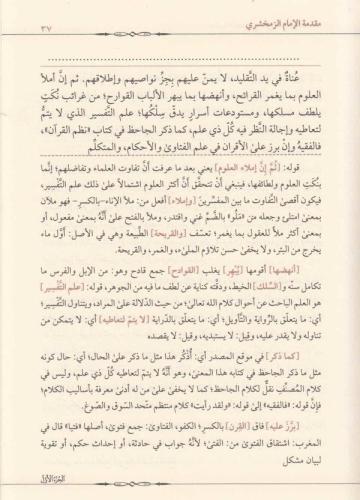 مقدمة الإمام الزمخشري
٣٧
عُناةٌ في يد التَّقليد، لا يمنّ عليهم بِجزِّ نواصيهم وإطلاقهم. ثم إنَّ أملأ
العلوم بما يغمر القرائح، وأنهضها بما يبهر الألباب القوارح؛ من غرائب نُكَتٍ
يلطف مسلكها، ومستودعات أسرارٍ يدقّ سِلْكُها؛ علم التَّفسير الذي لا يتمُّ
لتعاطيه وإجالة النَّظر فيه كُلّ ذي علم، كما ذكر الجاحظ في كتاب «نظم القرآن»،
فالفقيهُ وإن برز علىٰ الأقران في علم الفتاوىٰ والأحكام، والمتكلّم
قوله: [ثُمَّ إنَّ إملاء العلوم] يعني بعد ما عرفت أنَّ تفاوت العلماء وتفاضلهم؛ إنَّما
بنُكَتِ العلوم ولطائفها، فينبغي أنْ تتحقَّق أنَّ أكثر العلوم اشتمالاً علىٰ ذلك علم التَّفسير،
فيكون أقصىٰ التفاوت ما بين المفسِّرين [وإملاء] أفعل: من ملأ الإناء -بالكسر- فهو ملآن
بمعنىٰ امتلىٰ وجعله من «مَلُؤ» بالضَّمّ غني واقتدر، وملأ بالفتح علىٰ أنَّهُ بمعنىٰ مفعول، أو
بمعنىٰ أكثر ملأً للعقول بما يغمر؛ تعسّف، [والقريحة] الطَّبيعة وهي في الأصل: أوَّل ماء
يخرج من البئر، ولا يخفىٰ حسن تلاؤم المليء، والغمر، والقريحة.
[أنهضها] أقومها [يَبْهَر] يغلب [القوادح] جمع قادح وهو: من الإبل والفرس ما
تكامل سنّه و[السلك] الخيط، ودقّته كناية عن لطف ما فيه من الجوهر، قوله: [علم التَّفسير]
هو العلم الباحث عن أحوال كلام الله تعالىٰ؛ من حيث الدَّلالة علىٰ المراد، ويتناول التَّفسير؛
أي: ما يتعلّق بالرِّواية والتَّأويل؛ أي: ما يتعلّق بالدِّراية [لا يتمّ لتعاطيه] أي: لا يتمكن من
تناوله ولا يقدر عليه، وقِيل: لا يستبديه، وقيل: لا يقصده
[كما ذكر] في موقع المصدر أي: أَذْكُر هذا مثل ما ذكر علىٰ الحال؛ أي: حال كونه
مثل ما ذكر الجاحظ في كتابه هذا المعنىٰ، وهو أنَّهُ لا يتم لتعاطيه كُلّ ذي علم، وليس في
كلام المُصنِّف نقلٌ لكلام الجاحظ؛ كما لا يخفىٰ علىٰ من له أدنىٰ معرفة بأساليب الكلام؛
فإنَّ قوله: «فالفقيه» إلىٰ قوله: «ولقد رأيت» كلام منتظم متّحد السّوق والصّوغ.
[برَّزَ عليه] فاق [القِرن] بالكسر: الكفو، الفتاوىٰ: جمع فتوىٰ، أصلها «فتيا» قال في
المغرب: اشتقاق الفتوىٰ من: الفتىٰ؛ لأنَّهُ جواب في حادثة، أو إحداث حكم، أو تقوية
لبيان مشكل
الجزء الأول